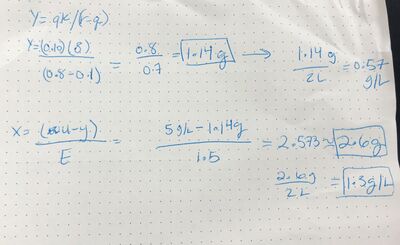 Y = qk/(r-q)
Y = (0.10)(8) / (0.8-0.1) = 0.8 / 0.7 = 1.14 g → 1.14 g / 2L = 0.57 g/L
X = (u-y) / E = 5 g/L - 1.14g / 1.5 = 2.573 ≈ 2.6g
2.6g / 2L = 1.3g/L